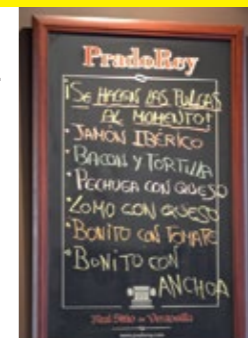 PradoRey
¡SE HACEN LAS PULGAS
AL MOMENTO!
• JAMÓN IBÉRICO
• BACON Y TORTILLA
• PECHUGA CON QUESO
• LOMO CON QUESO
• BONITO CON TOMATE
• BONITO CON
ANCHOA
Real Sitio de Ventosilla